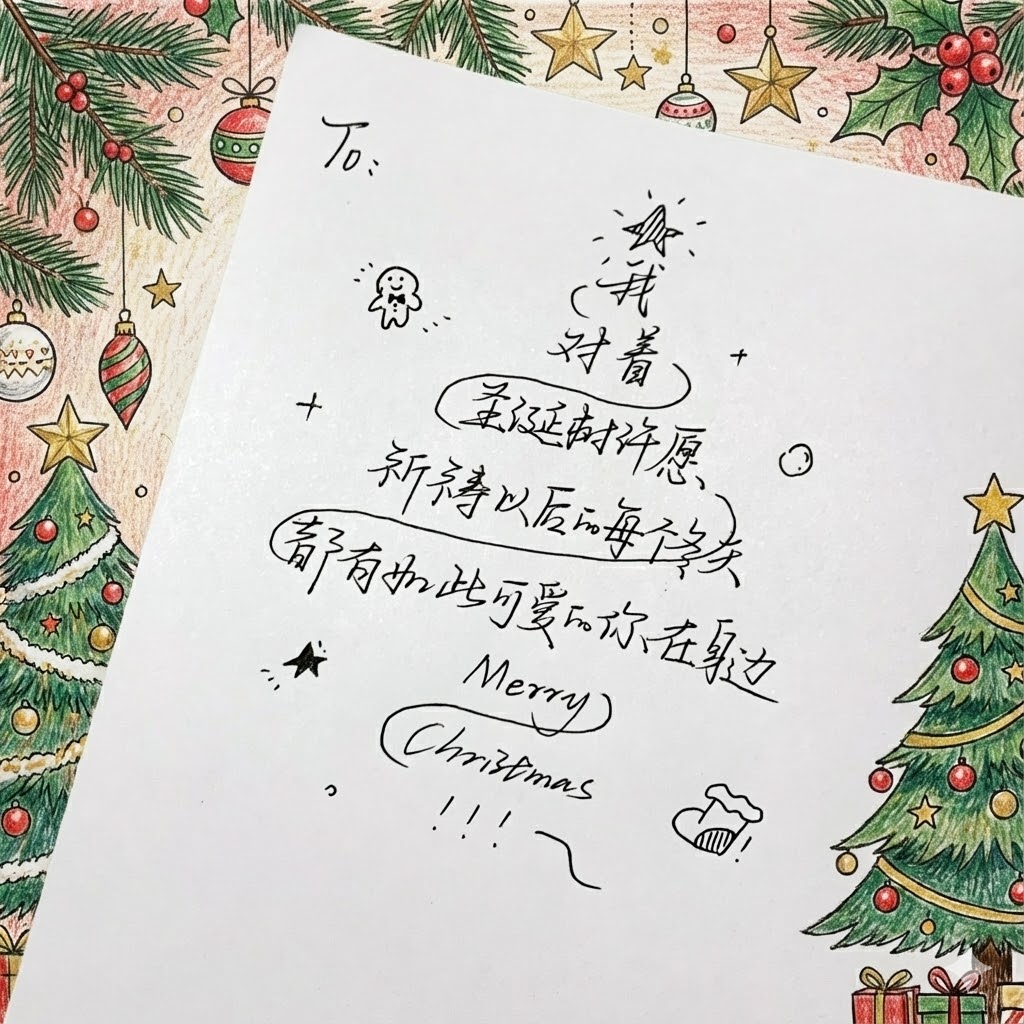 To:
我
对着
圣诞树许愿
祈祷以后的每个冬天
都有如此可爱的你在身边
Merry
Christmas
!!!